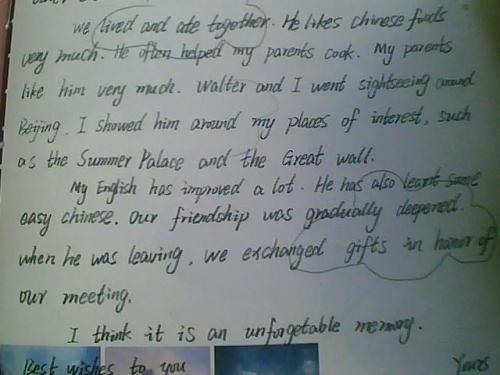 we lived and ate together. He likes chinese foods
very much. He often helped my parents cook. My parents
like him very much. Walter and I went sightseeing around
Beijing. I showed him around my places of interest, such
as the Summer Palace and the Great wall.
My English has improved a lot. He has also learnt some
easy chinese. Our friendship was gradually deepened.
when he was leaving, we exchanged gifts in honor of
our meeting.
I think it is an unforgetable memory.
Best wishes to you
Yours